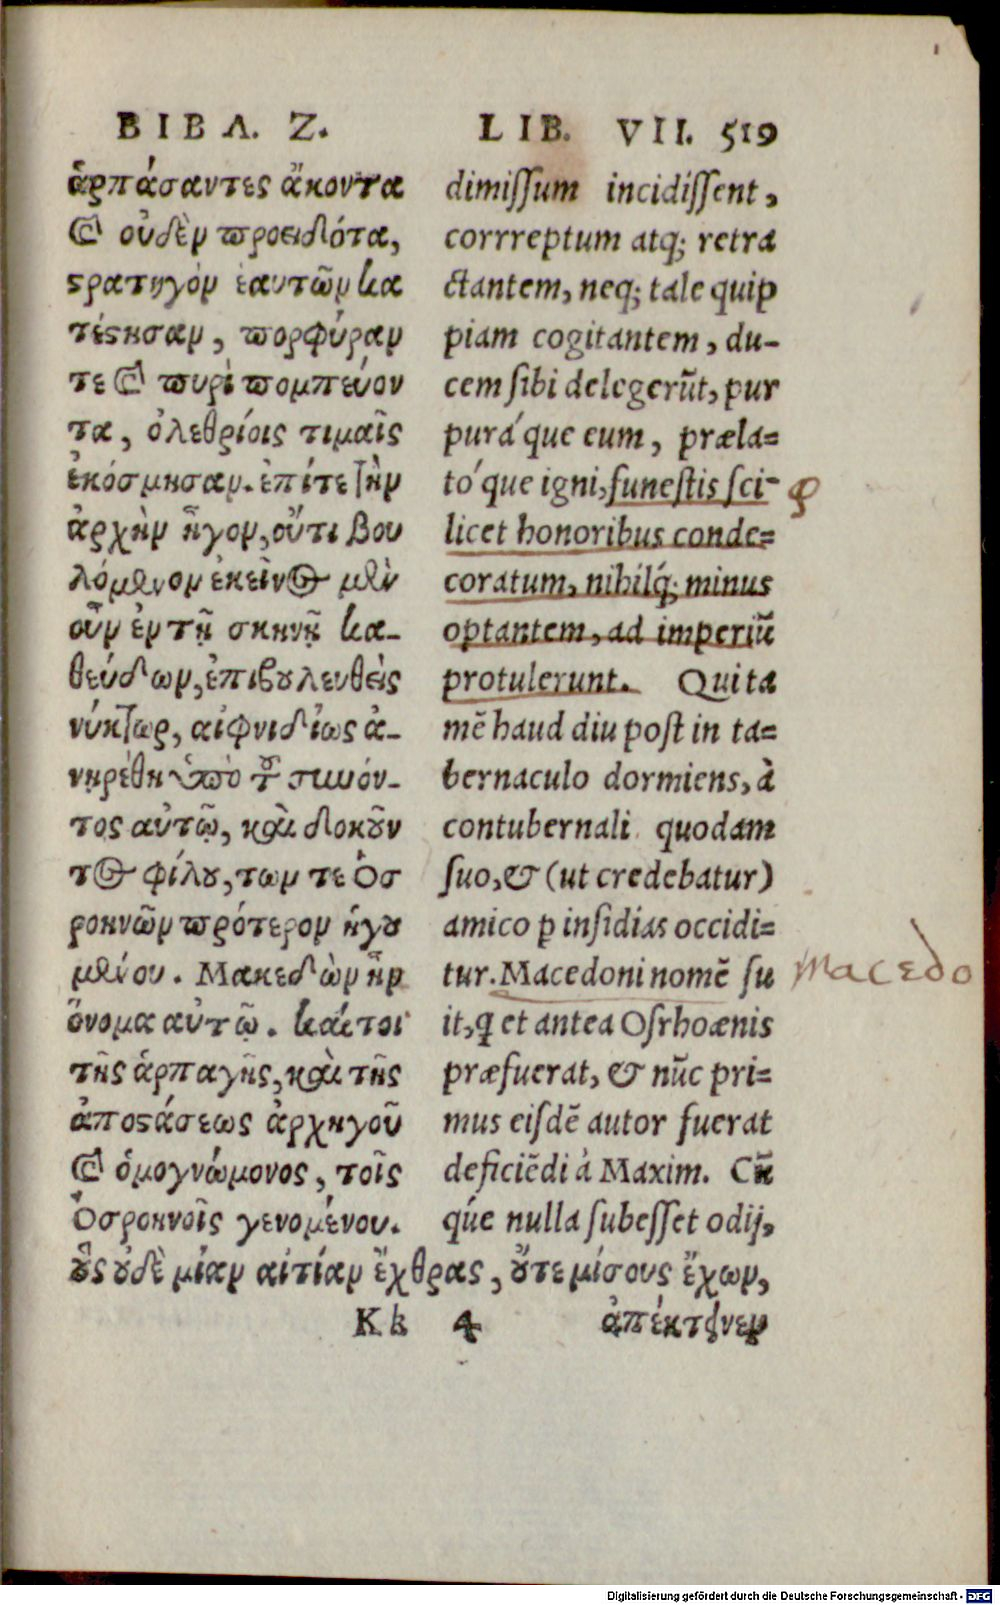 ΒΙΒΛ. Ζ.
ἁρπάσαντες ἄκοντα
καὶ οὐδὲν προειδότα,
ϛρατηγὸν ἑαυτῶν κα
τέϛησαν, πορφύραν
τε καὶ πυρὶ πομπεύον
τα, ὀλεθρίοις τιμαῖς
ἐκόσμησαν. ἐπί τε τὴν
ἀρχὴν ἦγον, οὔτι βου
λόμενον ἐκεῖνος μὲν
οὖν ἐν τῇ σκηνῇ κα-
θεύδων, ἐπιβουλευθεὶς
νύκτωρ, αἰφνιδίως ἀ-
νῃρέθη ὑπὸ τοῦ συνόν-
τος αὐτῷ, καὶ δοκοῦν
τος φίλου, των τε Ὀσ
ροηνῶν πρότερον ἡγου
μένου. Μακεδὼν ἦν
ὄνομα αὐτῷ. καίτοι
τῆς ἁρπαγῆς, καὶ τῆς
ἀποϛάσεως ἀρχηγοῦ
καὶ ὁμογνώμονος, τοῖς
Ὀσροηνοῖς γενομένου.
ὃς οὐδὲ μίαν αἰτίαν ἔχθρας, οὔτε μίσους ἔχων,
Kk 4 ἀπέκτεινεν
LIB. VII. 519
dimiſſum incidiſſent,
corrreptum atq; retra
ctantem, neq; tale quip
piam cogitantem, du-
cem ſibi delegerũt, pur
purá que eum, præla=
tó que igni, funeſtis ſci-
licet honoribus conde=
coratum, nihilq́; minus
optantem, ad imperiũ
protulerunt. Qui ta
mẽ haud diu poſt in ta=
bernaculo dormiens, à
contubernali quodam
ſuo, & (ut credebatur)
amico ꝑ inſidias occidi=
tur. Macedoni nomẽ fu
it, ꝗ et antea Oſrhoænis
præfuerat, & nũc pri=
mus eiſdẽ autor fuerat
deficiẽdi à Maxim. Cũ
q́ue nulla ſubeſſet odij,
Macedo